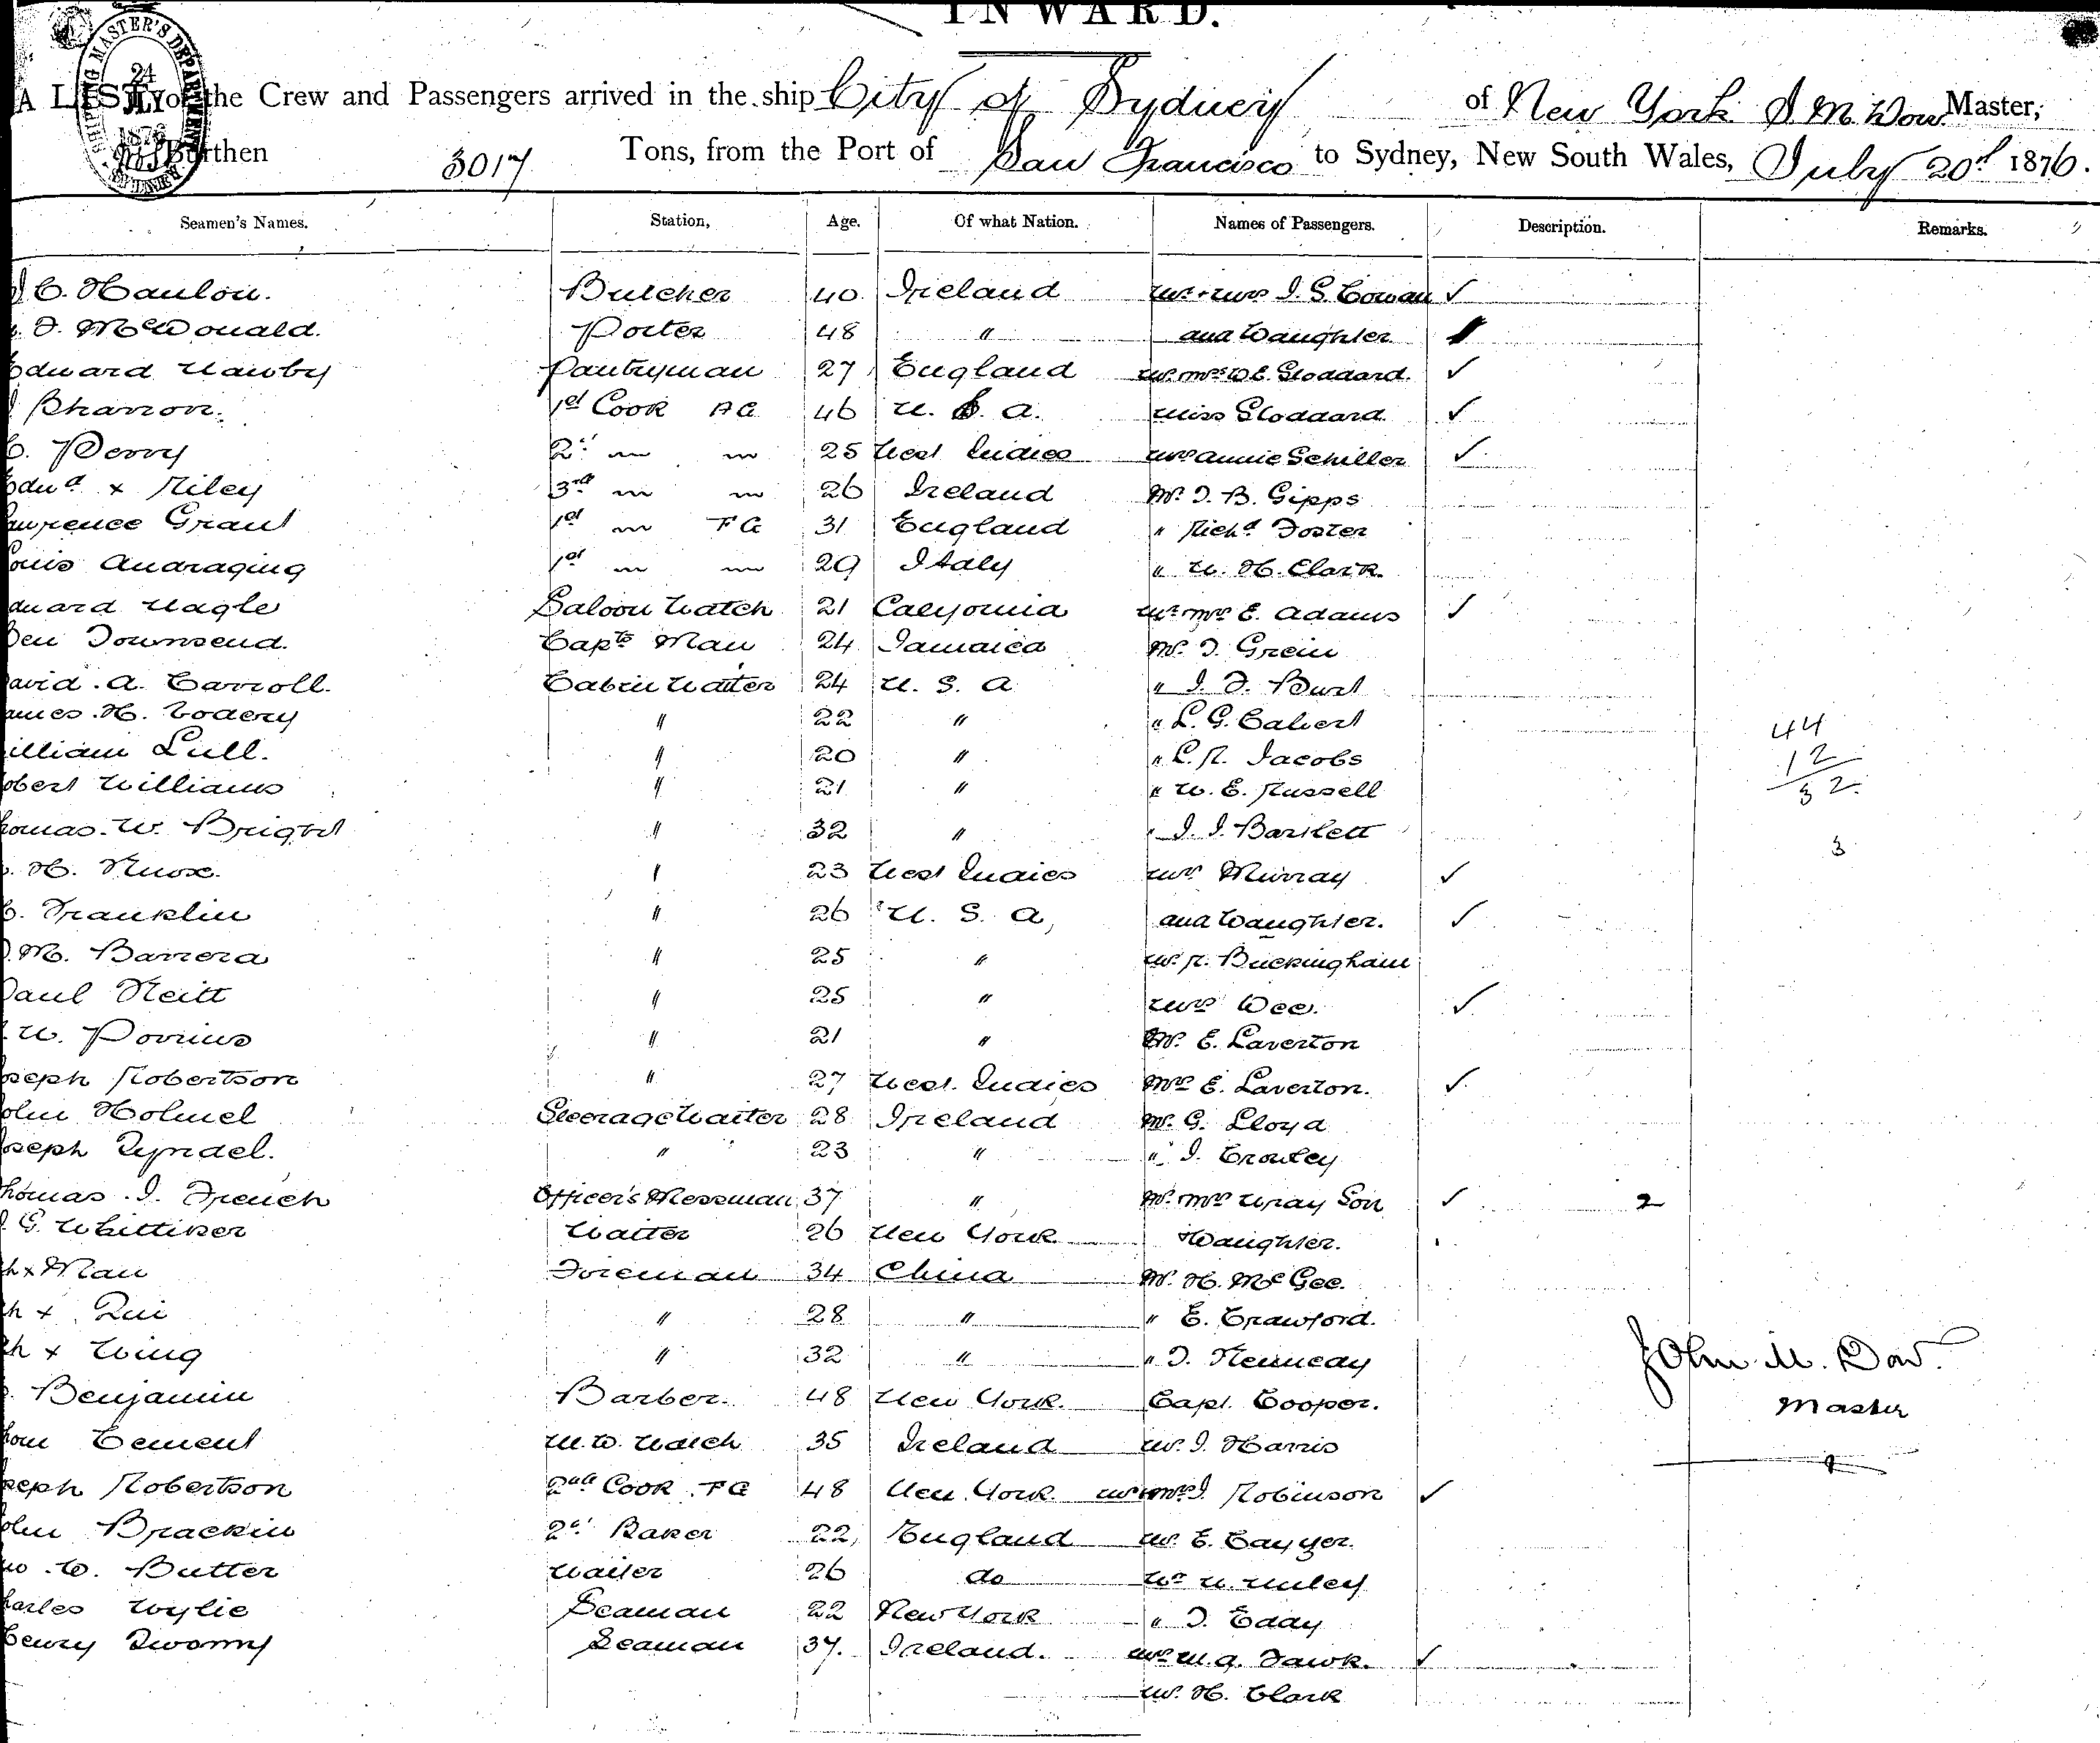 INWARD.
A LIST of the Crew and Passengers arrived in the ship City of Sydney of New York J. M. Dow Master,
Burthen 3017 Tons, from the Port of San Francisco to Sydney, New South Wales, July 20th 1876.
SHIPPING MASTER'S DEPARTMENT 24 JULY 1876 SYDNEY
Seamen's Names. Station, Age. Of what Nation. Names of Passengers. Description. Remarks.
C. Hanlon. Butcher 40 Ireland Mr & Mrs J. S. Cowan ✓
J. McDonald. Porter 48 " and Daughter
Edward Hamby Pantryman 27 England Mr Mrs W. E. Stoddard. ✓
Shannon. 1st Cook AG 46 U. S. A. Miss Stoddard ✓
C. Perry 2d " " 25 West Indies Mrs Annie Schiller ✓
Edwd x Riley 3rd " " 26 Ireland Mr. J. B. Gipps
Lawrence Grant 1st " FG 31 England " Richd Foster
Louis Andraging 1st " " 29 Italy " W. H. Clark.
Edward Nagle Saloon Watch 21 California Mr Mrs E. Adams ✓
Ben Townsend. Capts Man 24 Jamaica Mr. J. Grein
David. A. Carroll. Cabin Waiter 24 U. S. A " J. F. Burt
James. H. Vodery " 22 " " L. G. Calvert 44
William Lull. " 20 " " L. R. Jacobs 12
Robert Williams " 21 " " W. E. Russell 32
Thomas. W. Bright " 32 " " J. J. Bartlett 3
H. Knox. " 23 West Indies Mrs Murray ✓
C. Franklin " 26 U. S. A, and Daughter. ✓
M. Barrera " 25 " Mr. R. Buckingham
Paul Neitt " 25 " Mrs Dee. ✓
W. Povrius " 21 " Mr. E. Laverton
Joseph Robertson " 27 West. Indies Mrs E. Laverton. ✓
John Holmel Steerage Waiter 28 Ireland Mr. G. Lloyd
Joseph Tyndel. " 23 " " J. Crowley
Thomas. J. French Officer's Messman 37 " Mr. Mrs Wray Son ✓ 2
G. Whittiker Waiter 26 New York Daughter.
Ah x Man Foreman 34 China Mr. H. McGee.
Ah x Qui " 28 " " E. Crawford.
Ah x Wing " 32 " " J. Kennedy John M. Dow.
Benjamin Barber. 48 New York. Capt. Cooper. Master
Thom Cement M. D. Watch 35 Ireland Mr. J. Harris
Joseph Robertson 2nd Cook. FG 48 New. York. Mr & Mrs J. Robinson ✓
John Brackin 2d Baker 22, England Mr. E. Cayzer.
W. Butter Waiter 26 do
Charles Wylie Seaman 22 New York " J. Eddy
Henry Twomy Seaman 37. Ireland. Mrs M. A. Fawk. ✓
Mr. H. Clark